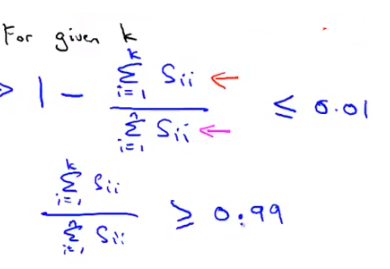 For given k
> 1 - \frac{\sum_{i=1}^{k} S_{ii}}{\sum_{i=1}^{n} S_{ii}} ≤ 0.01
\frac{\sum_{i=1}^{k} S_{ii}}{\sum_{i=1}^{n} S_{ii}} ≥ 0.99